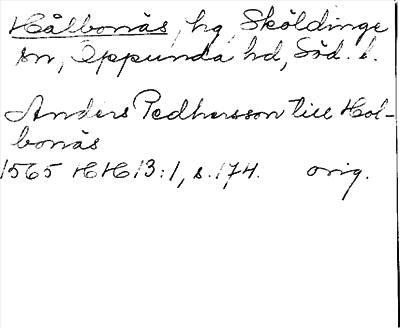 Hålbonäs, hg, Sköldinge
sn, Oppunda hd, Söd. l.
Anders Pedhersson till Hol-
bonäs
1565 HH 13:1, s. 174. orig.